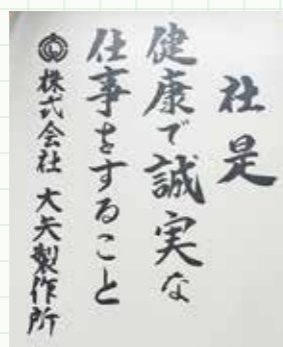 社是
健康で誠実な
仕事をすること
株式会社 大矢製作所